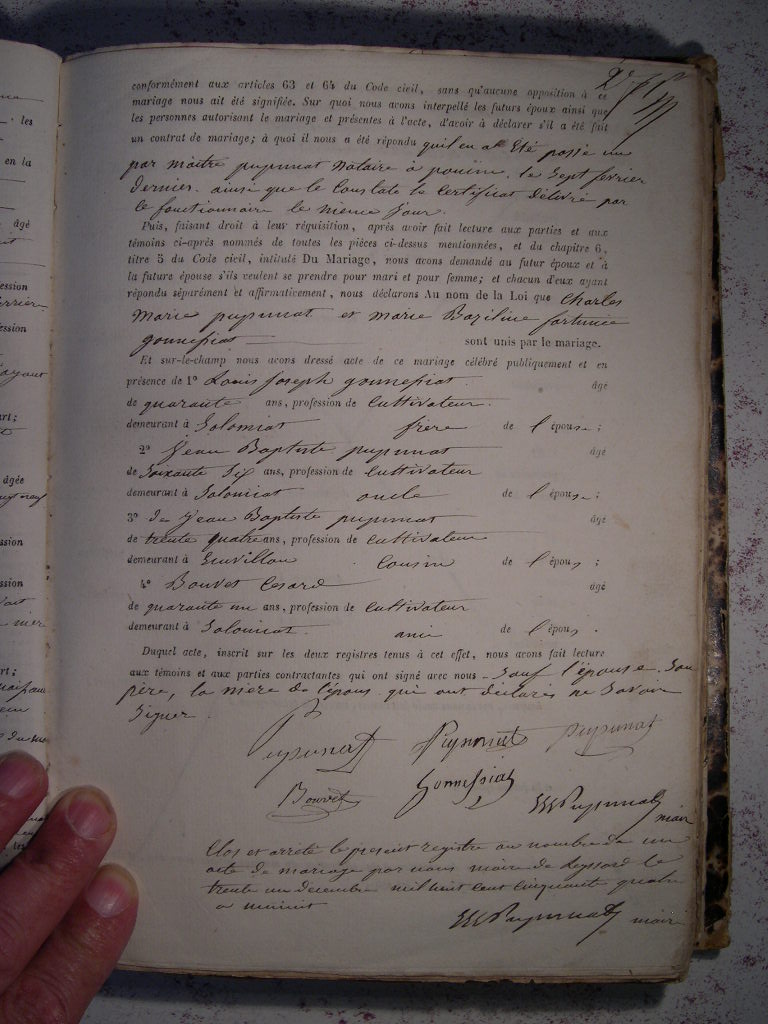 conformément aux articles 63 et 64 du Code civil, sans qu'aucune opposition à ce
mariage nous ait été signifiée. Sur quoi nous avons interpellé les futurs époux ainsi que
les personnes autorisant le mariage et présentes à l'acte, d'avoir à déclarer s'il a été fait
un contrat de mariage; à quoi il nous a été répondu qu'il en a Eté passé un
par maitre pupunat Notaire à poncin, le Sept février
Dernier. ainsi que le Constate le Certificat Délivré par
le fonctionnaire le meme jour.
Puis, faisant droit à leur réquisition, après avoir fait lecture aux parties et aux
témoins ci-après nommés de toutes les pièces ci-dessus mentionnées, et du chapitre 6,
titre 5 du Code civil, intitulé Du Mariage, nous avons demandé au futur époux et à
la future épouse s'ils veulent se prendre pour mari et pour femme; et chacun d'eux ayant
répondu séparément et affirmativement, nous déclarons Au nom de la Loi que Charles
Marie pupunat et marie Baziline fortunée
gonnessiat sont unis par le mariage.
Et sur-le-champ nous avons dressé acte de ce mariage célébré publiquement et en
présence de 1º Louis Joseph gonnessiat âgé
de quarante ans, profession de Cultivateur.
demeurant à Solomiat frère de l'épouse;
2º Jean Baptiste pupunat âgé
de Soixante Six ans, profession de Cultivateur
demeurant à Solomiat oncle de l'épouse;
3º de Jean Baptiste pupunat âgé
de trente quatre ans, profession de Cultivateur
demeurant à Cousin de l'épous;
4º Bouvet Cesard âgé
de quarante un ans, profession de Cultivateur
demeurant à Solomiat ami de l'épous.
Duquel acte, inscrit sur les deux registres tenus à cet effet, nous avons fait lecture
aux témoins et aux parties contractantes qui ont signé avec nous Sauf l'épouse. Son
père, la mere de l'épous. qui ont déclarés ne Savoir
Signer.
Pupunat Pupunat Pupunat
Bouvet Gonnessiat Pupunat maire
Clos et arrété le présent registre au nombre de un
acte de mariage par nous maire de Leyssard le
trente un décembre mil huit cent cinquante quatre
a minuit
Pupunat maire